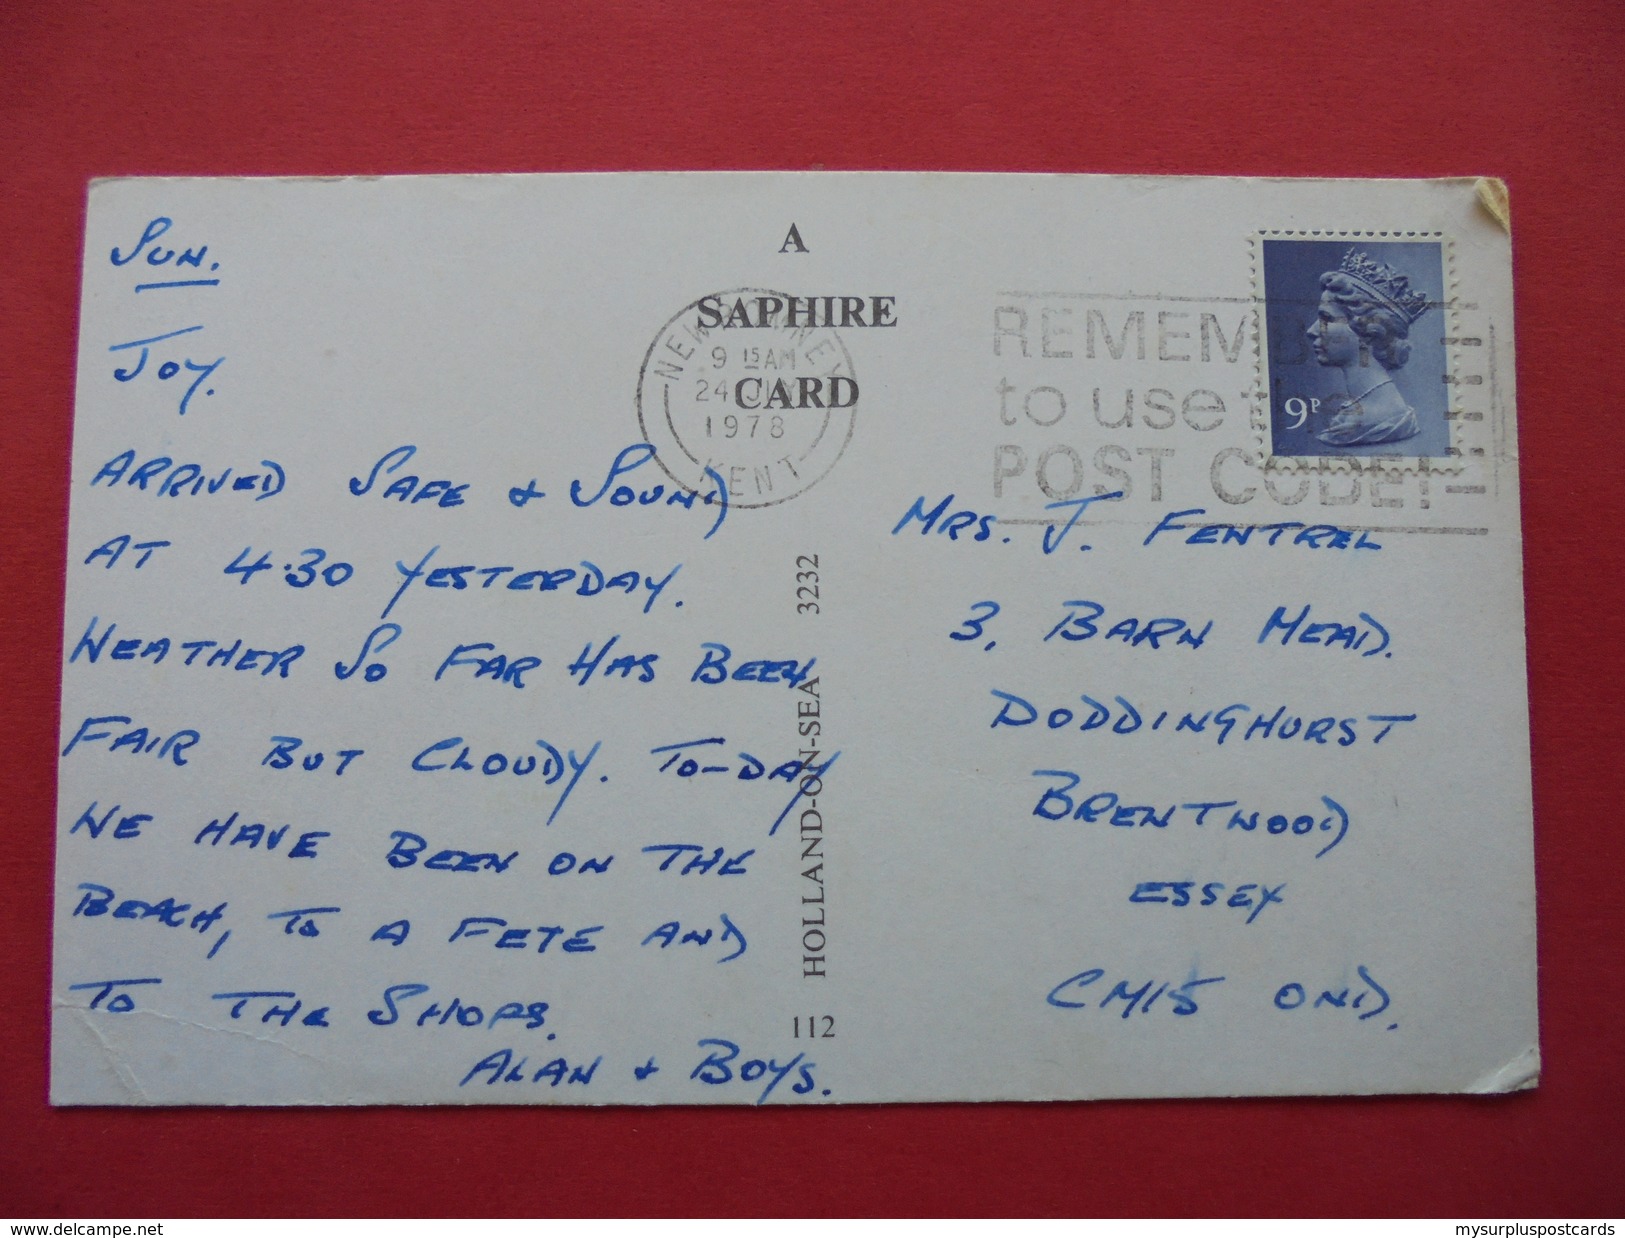 Sun.
Joy.
ARRIVED SAFE & SOUND
AT 4.30 YESTERDAY.
WEATHER SO FAR HAS BEEN
FAIR BUT CLOUDY. TO-DAY
WE HAVE BEEN ON THE
BEACH, TO A FETE AND
TO THE SHOPS.
ALAN & BOYS.
A
SAPHIRE
CARD
NEW ROMNEY
9 15 AM
24 JLY
1978
KENT
HOLLAND-ON-SEA 3232
112
REMEMBER
to use the
POST CODE!
9P
MRS. J. FENTREL
3, BARN MEAD.
DODDINGHURST
BRENTWOOD
ESSEX
CM15 0ND.
www.delcampe.net
mysurpluspostcards